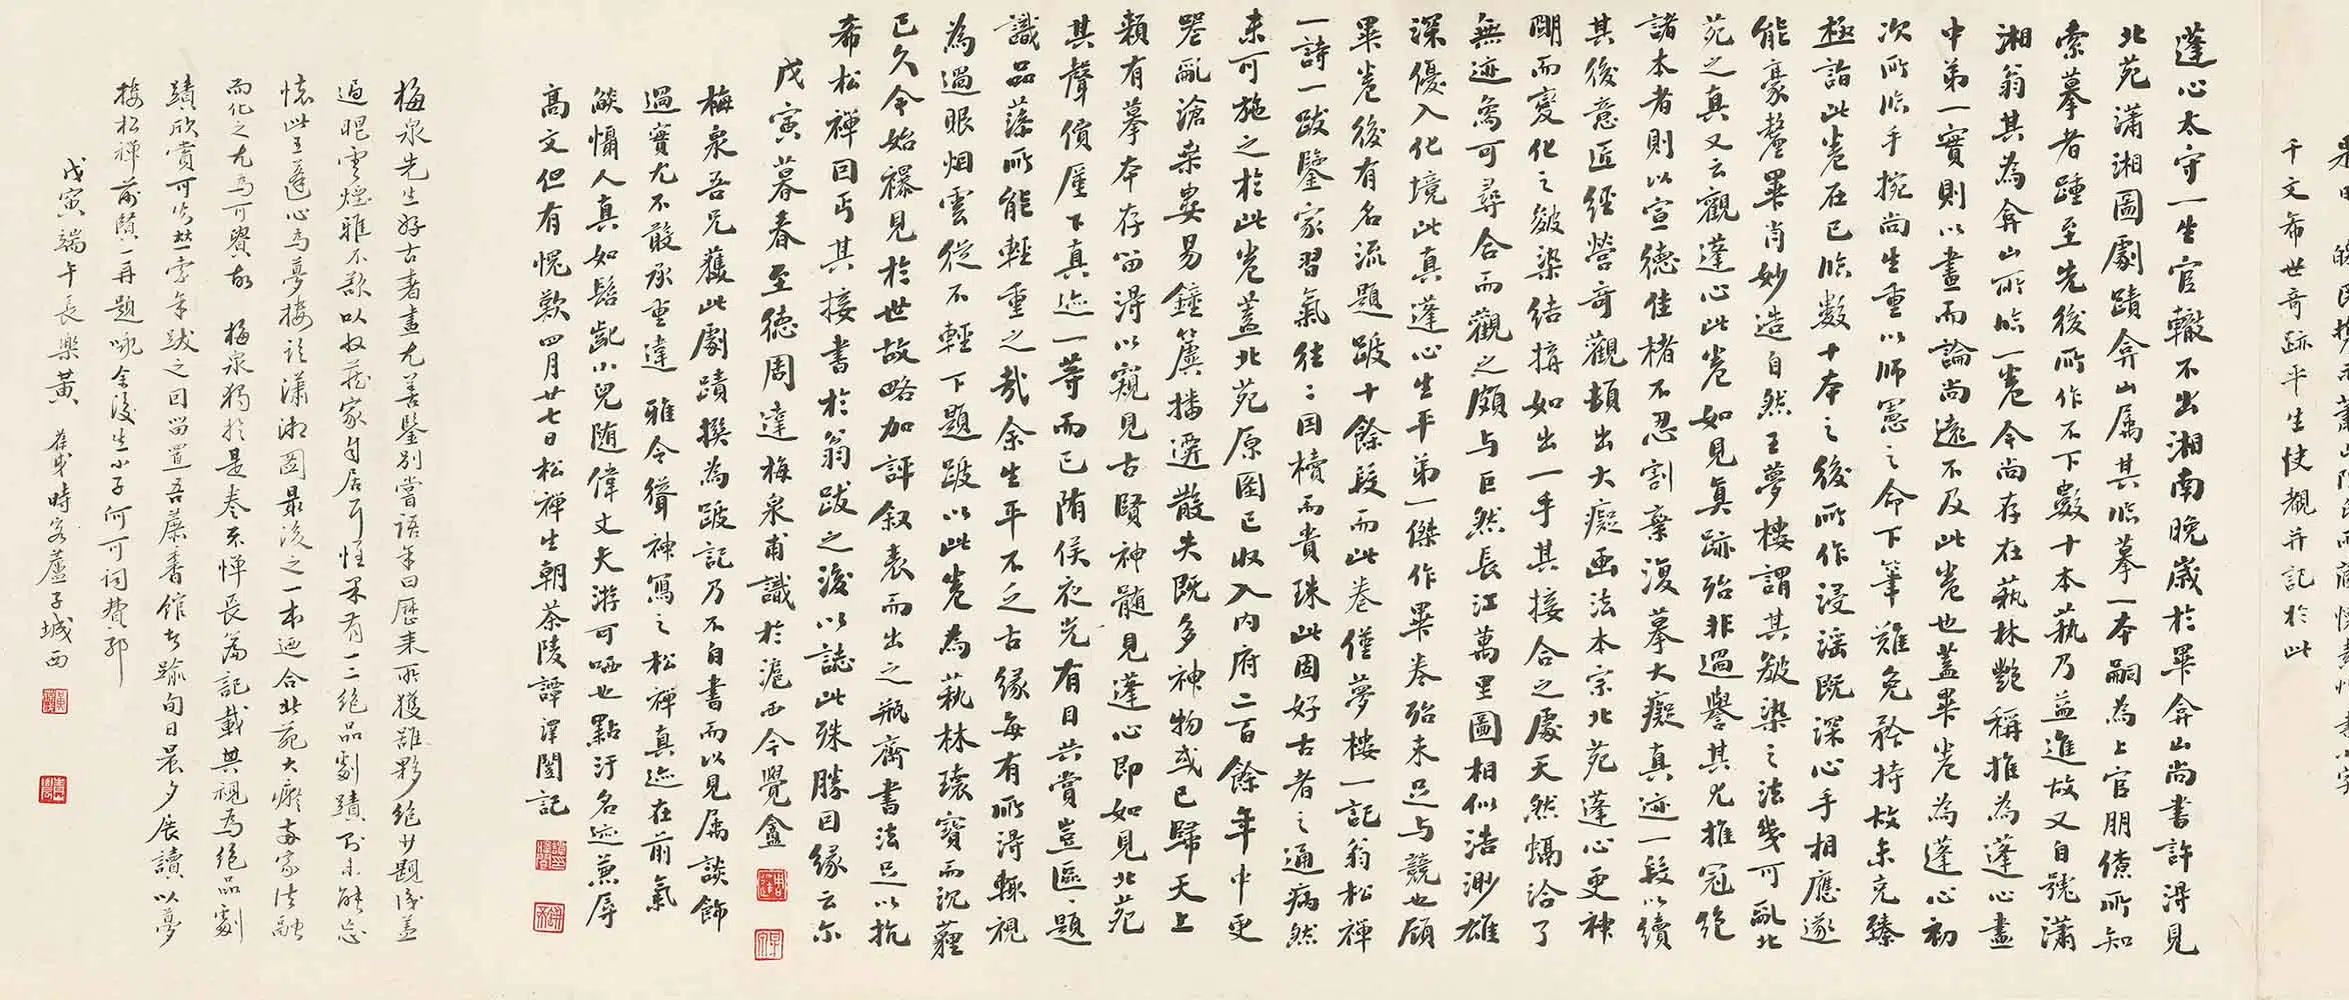 千文希世奇跡平生快覩並記於此
蓬心太守一生官轍不出湘南晚歲於畢弇山尚書許得見
北苑瀟湘圖劇蹟弇山屬其臨摹一本嗣為上官朋僚所知
索摹者踵至先後所作不下數十本藝乃益進故又自號瀟
湘翁其為弇山所臨一卷今尚存在藝林艷稱推為蓬心畫
中弟一實則以畫而論尚遠不及此卷也蓋畢卷為蓬心初
次所臨手掜尚生重以師憲之命下筆難免矜持故未克臻
極詣此卷在已臨數十本之後所作浸淫既深心手相應遂
能豪釐畢肖妙造自然王夢樓謂其皴染之法幾可亂北
苑之真又云觀蓬心此卷如見真跡殆非過譽其尤推冠絕
諸本者則以宣德佳楮不忍割棄復摹大癡真迹一段以續
其後意匠經營奇觀頓出大癡画法本宗北苑蓬心更神
明而變化之皴染結搆如出一手其接合之處天然熵洽了
無迹象可尋合而觀之頗与巨然長江萬里圖相似浩渺雄
深優入化境此真蓬心生平弟一傑作畢卷殆未足与競也顧
畢卷後有名流題跋十餘段而此卷僅夢樓一記翁松禪
一詩一跋鑒家習氣往往因櫝而貴珠此固好古者之通病然
未可施之於此卷蓋北苑原圖已收入內府二百餘年中更
咢亂滄桒婁易鐘簴播遷散失既多神物或已歸天上
賴有摹本存留得以窺見古賢神髄見蓬心即如見北苑
其聲價厪下真迹一等而已隋侯夜光有目共賞豈區區題
識品藻所能輕重之哉余生平不乏古緣每有所得輒視
為過眼烟雲從不輕下題跋以此卷為藝林瓌寶而沉薶
已久今始襮見於世故略加評敘表而出之瓶齋書法足以抗
希松禪因丐其接書於翁跋之後以誌此殊勝因緣云尔
戊寅暮春至德周達梅泉甫識於滬西今覺盦
梅泉吾兄獲此劇蹟撰為跋記乃不自書而以見屬談飾
過實尤不敢承重違雅令聳神寫之松禪真迹在前氣
燄懾人真如髫齓小兒随偉丈夫游可哂也點汙名迹兼辱
高文但有愧歎四月廿七日松禪生朝茶陵譚澤闓記
梅泉先生好古書畫尤善鑒別嘗語余曰歷來所獲雖夥絕少題識蓋
過眼雲煙雅不欲以收藏家自居耳惟果有一二絕品劇蹟則未能忘
懷此王蓬心為夢樓臨瀟湘圖最後之一本迺合北苑大癡兩家法融
而化之尤為可貴故 梅泉獨於是卷不憚長篇記載與視為絕品劇
蹟欣賞可知甚素余跋之因留置吾蘦香館者踰旬日晨夕展讀以夢
樓松禪前賢一再題咏余後生小子何可詞費邪
戊寅端午長樂黃葆戉時客蘆子城西